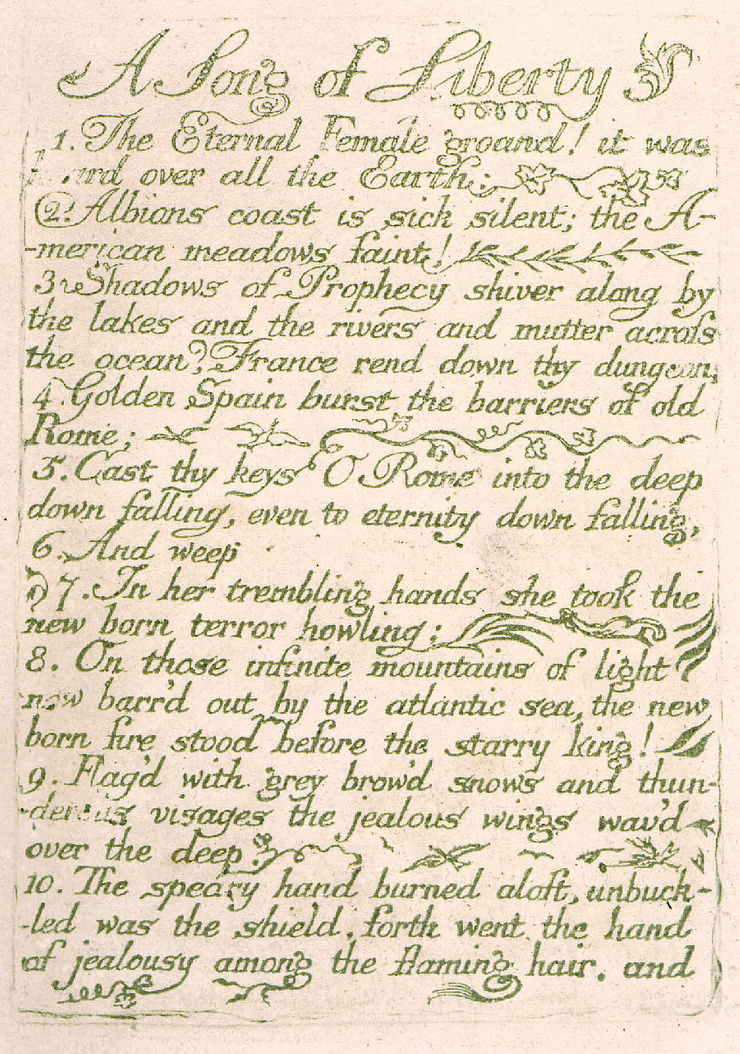 A Song of Liberty
1. The Eternal Female groand! it was
heard over all the Earth:
2. Albions coast is sick silent; the A-
-merican meadows faint!
3 Shadows of Prophecy shiver along by
the lakes and the rivers and mutter across
the ocean? France rend down thy dungeon;
4 Golden Spain burst the barriers of old
Rome;
5. Cast thy keys O Rome into the deep
down falling, even to eternity down falling,
6. And weep
7. In her trembling hands she took the
new born terror howling:
8. On those infinite mountains of light
now barr'd out by the atlantic sea, the new
born fire stood before the starry king!
9. Flag'd with grey brow'd snows and thun-
-derous visages the jealous wings wav'd
over the deep.
10. The speary hand burned aloft, unbuck-
-led was the shield. forth went the hand
of jealousy among the flaming hair. and